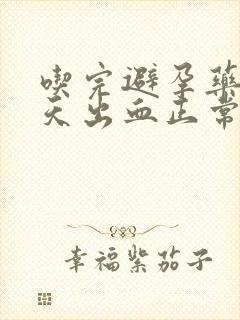 喫完避孕藥
天出血正常
幸福紫茄子